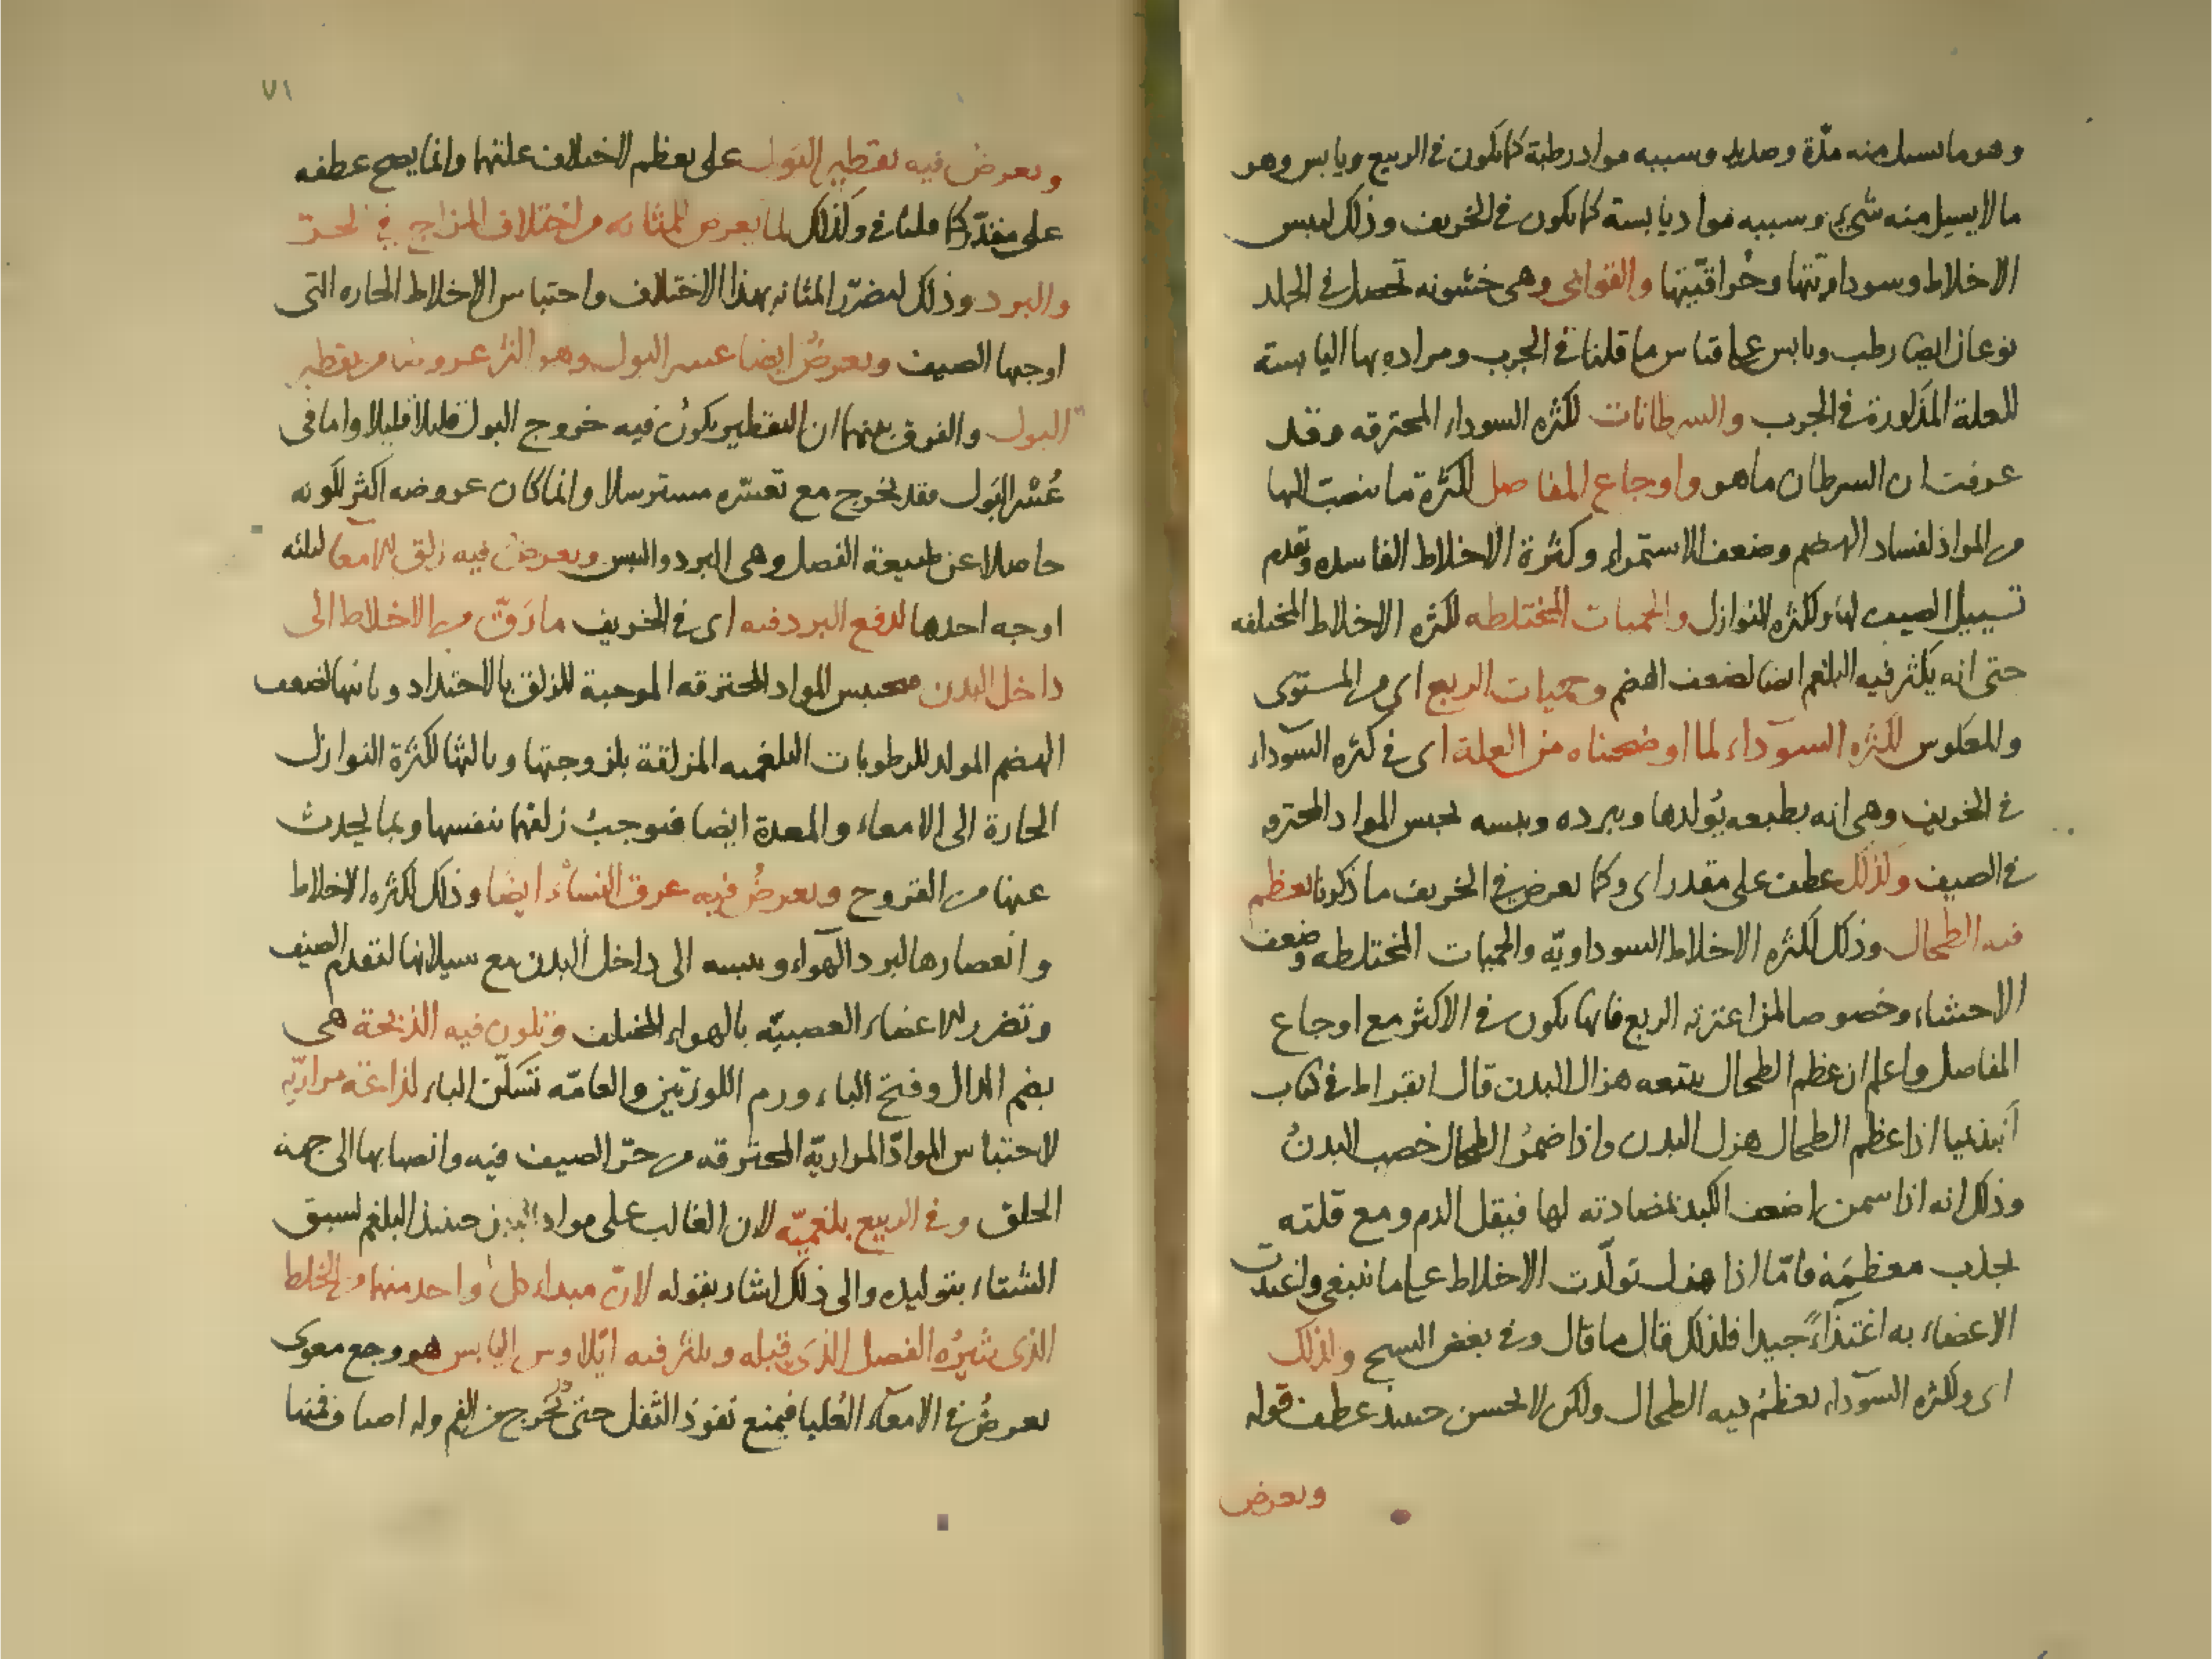 وهو ما يسيل منه مدّة وصديد وسببه مواد رطبة كما يكون في الربيع ويابس وهو
ما لا يسيل منه شيء وسببه مواد يابسة كما يكون في الخريف وذلك ليبس
الاخلاط وسوداويّتها وحُراقيّتها والقوابى وهى خشونه تحصل في الجلد
نوعان ايضا رطب ويابس على قياس ما قلنا في الجرب ومراده بها اليابسة
للعلة المذكورة في الجرب والسرطانات لكثرة السوداء المحترقه وقد
عرفت ان السرطان ما هو واوجاع المفاصل لكثرة ما ينصبّ اليها
من المواد لفساد الهضم وضعف الاستمراء وكثرة الاخلاط الفاسده وتقدم
تسييل الصيف لها ولكثرة النوازل والحميات المختلطه لكثرة الاخلاط المختلفه
حتى انه يكثر فيه البلغم ايضا لضعف الهضم وحميات الربع اى من المستوى
والمعكوس لكثره السوداء لما اوضحناه من العلة اى في كثرة السوداء
في الخريف وهى انه بطبعه يُولدها وببرده ويبسه يحبس المواد المحترقه
في الصيف ولذلك عطف على مقدر اى وكما يعرض في الخريف ما ذكرنا يعظم
فيه الطحال وذلك لكثره الاخلاط السوداويّه والحميات المختلطه وضعف
الاحشاء وخصوصا لمن اعترته الربع فانها يكون في الاكثر مع اوجاع
المفاصل واعلم ان عظم الطحال يتبعه هزال البدن قال ابقراط في كتاب
ابيذيميا اذا عظم الطحال هزل البدن واذا ضمُر الطحال خصب البدنُ
وذلك انه اذا سمن اضعف الكبد لمضادته لها فيقل الدم ومع قلته
يجذب معظمَه فامّا اذا هزل تولّدت الاخلاط على ما ينبغى واغتذت
الاعضاء به اغتذاءً جيدا فلذلك قال ما قال وفى بعض النسخ ولذلك
اى ولكثره السوداء يعظمُ فيه الطحال ولكن لا يحسن حينئذ عطف قوله
ويعرض
٧١
ويعرضُ فيه تقطير البَول على يعظم لاختلاف علتهما وانما يصح عطفه
على مقدّر كما قلنا في ولذلك لما يعرض للمثانه من اختلاف المزاج في الحرّ
والبرد وذلك لتضرّر المثانه بهذا الاختلاف واحتباس الاخلاط الحاره التى
اوجبها الصيف ويعرضُ ايضا عسر البول وهو اكثر عروضا من تقطير
البول والفرق بينهما ان التقطير يكونُ فيه خروج البول قليلا قليلا واما في
عُسْر البَول فقد يخرج مع تعسّره مسترسلا وانما كان عروضه اكثر لكونه
حاصلا عن طبيعة الفصل وهى البرد واليبس ويعرض فيه زلق الامعا لثلثه
اوجه احدها لدفع البرد فيه اى في الخريف ما رَقّ من الاخلاط الى
داخل البدن فيحتبس المواد المحترقه الموجبة للزلق بالاحتداد وثانيها لضعف
الهضم المولد للرطوبات البلغميه المزلقة بلزوجتها وثالثها لكثرة النوازل
الحارة الى الامعاء والمعدة ايضا فتوجبُ زلقهما بنفسها وبما يحدث
عنها من القروح ويعرضُ فيه عرق النساء ايضا وذلك لكثره الاخلاط
وانعصارها لبرد الهواء ويبسه الى داخل البدن مع سيلانها لتقدم الصيف
وتضرر الاعضاء العصبيّه بالهواء المختلف وتكون فيه الذبحة هى
بضم الذال وفتح الباء ورم اللوزتين والعامّه تسكّن الباء لذاعة مراريّه
لاحتباس الموادّ المراريّه المحترقه من حرّ الصيف فيه وانصبابها الى جهة
الحلق وفي الربيع بلغميّه لان الغالب على مواد البدن حينئذ البلغم لسبق
الشتاء بتوليده والى ذلك اشار بقوله لانّ مبداء كل واحد منهما من الخلط
الذى يثيرُه الفصل الذى قبله ويكثر فيه ايلاوس اليابس هو وجع معوى
يعرضُ في الامعآء العُليا فيمنع نفوذ الثفل حتى يُخرج من الفم وله اصناف فمنها